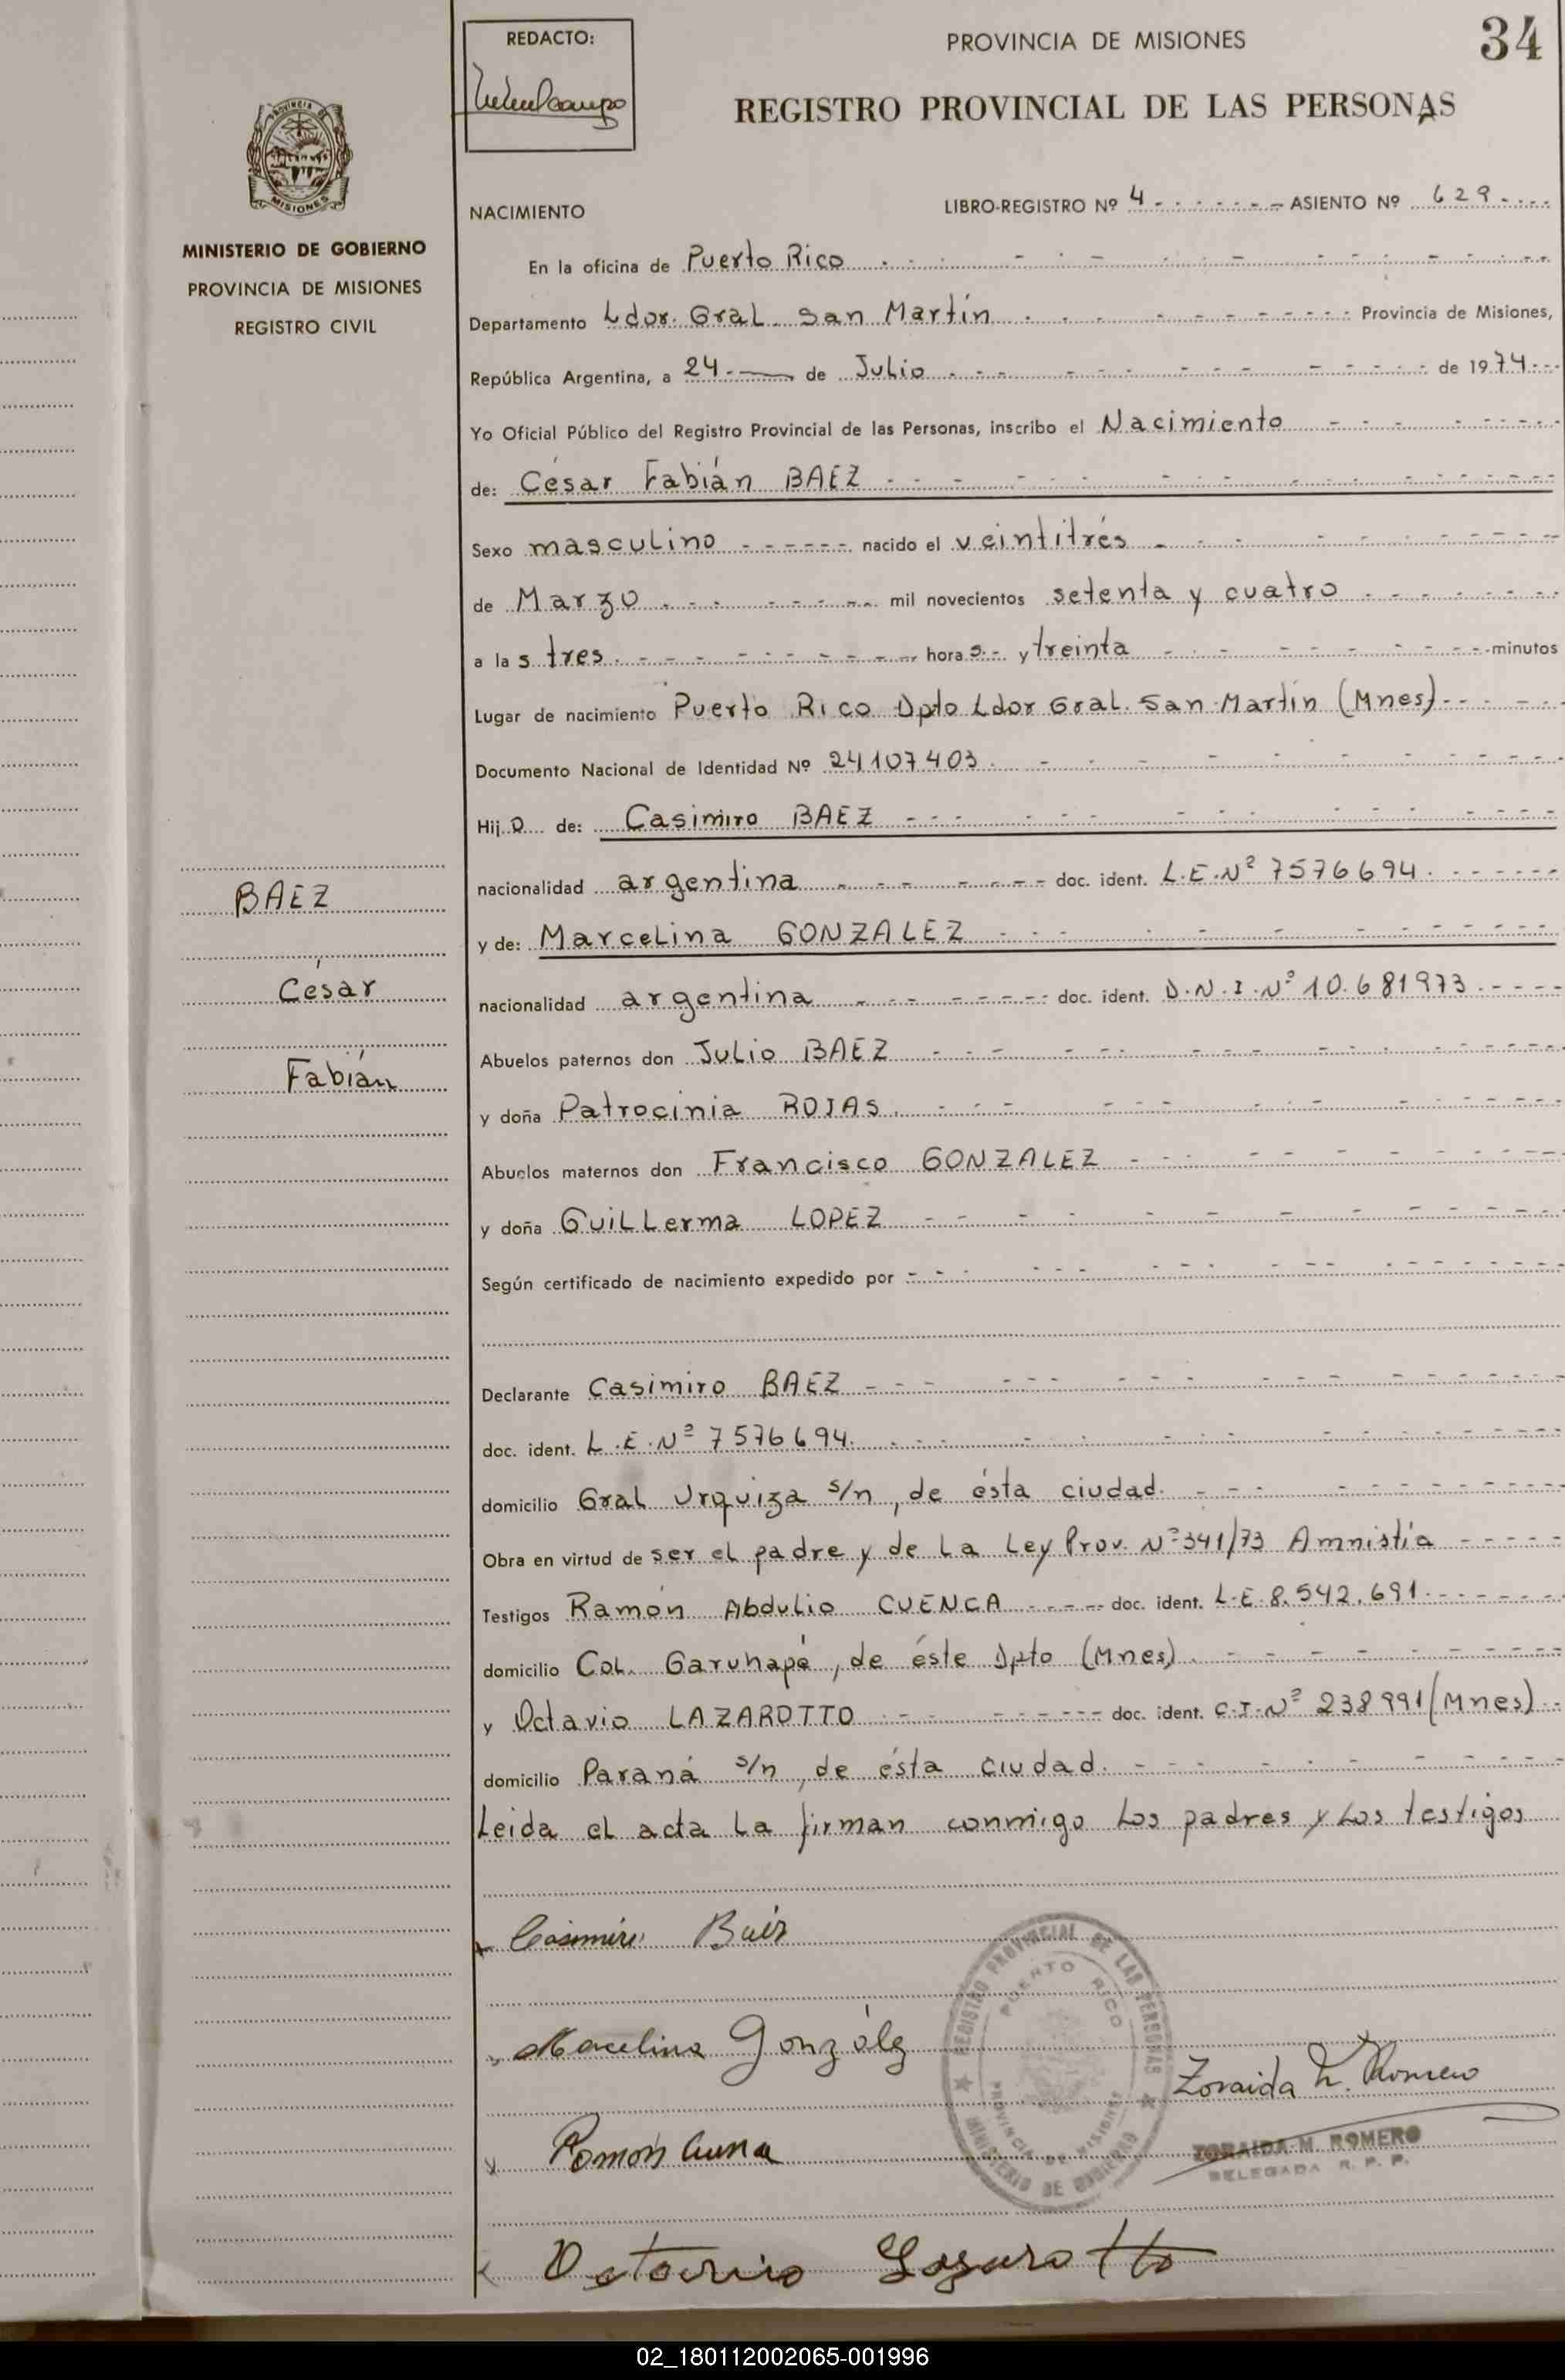 REDACTO:
PROVINCIA DE MISIONES
34
REGISTRO PROVINCIAL DE LAS PERSONAS
PROVINCIA
MISIONES
MINISTERIO DE GOBIERNO
PROVINCIA DE MISIONES
REGISTRO CIVIL
NACIMIENTO
LIBRO-REGISTRO Nº 4 ASIENTO Nº 629
En la oficina de Puerto Rico
Departamento Ldor. Gral. San Martín Provincia de Misiones,
República Argentina, a 24 de Julio de 1974
Yo Oficial Público del Registro Provincial de las Personas, inscribo el Nacimiento
de: César Fabián BAEZ
Sexo masculino nacido el veintitrés
de Marzo mil novecientos setenta y cuatro
a las tres horas y treinta minutos
Lugar de nacimiento Puerto Rico Dpto Ldor Gral. San Martín (Mnes)
Documento Nacional de Identidad Nº 24107403
Hijo de: Casimiro BAEZ
nacionalidad argentina doc. ident. L.E.Nº 7576694
y de: Marcelina GONZALEZ
nacionalidad argentina doc. ident. D.N.I.Nº 10.681973
Abuelos paternos don Julio BAEZ
y doña Patrocinia ROJAS
Abuelos maternos don Francisco GONZALEZ
y doña Guillerma LOPEZ
Según certificado de nacimiento expedido por
Declarante Casimiro BAEZ
doc. ident. L.E.Nº 7576694
domicilio Gral Urquiza s/n, de ésta ciudad.
Obra en virtud de ser el padre y de la Ley Prov. Nº 341/73 Amnistía
Testigos Ramón Abdulio CUENCA doc. ident. L.E.8.542.691
domicilio Col. Garuhapé, de éste Dpto (Mnes)
y Octavio LAZAROTTO doc. ident. C.I.Nº 238991(Mnes)
domicilio Paraná s/n, de ésta ciudad.
Leida el acta la firman conmigo los padres y los testigos
BAEZ
César
Fabián
Casimiro Baéz
Marcelina Gonzálz
REGISTRO PROVINCIAL DE LAS PERSONAS
PUERTO RICO
PROVINCIA DE MISIONES
MINISTERIO DE GOBIERNO
Zoraida M. Romero
ZORAIDA M. ROMERO
DELEGADA R. P. P.
Ramón
Octavio Lazarotto
02_180112002065-001996